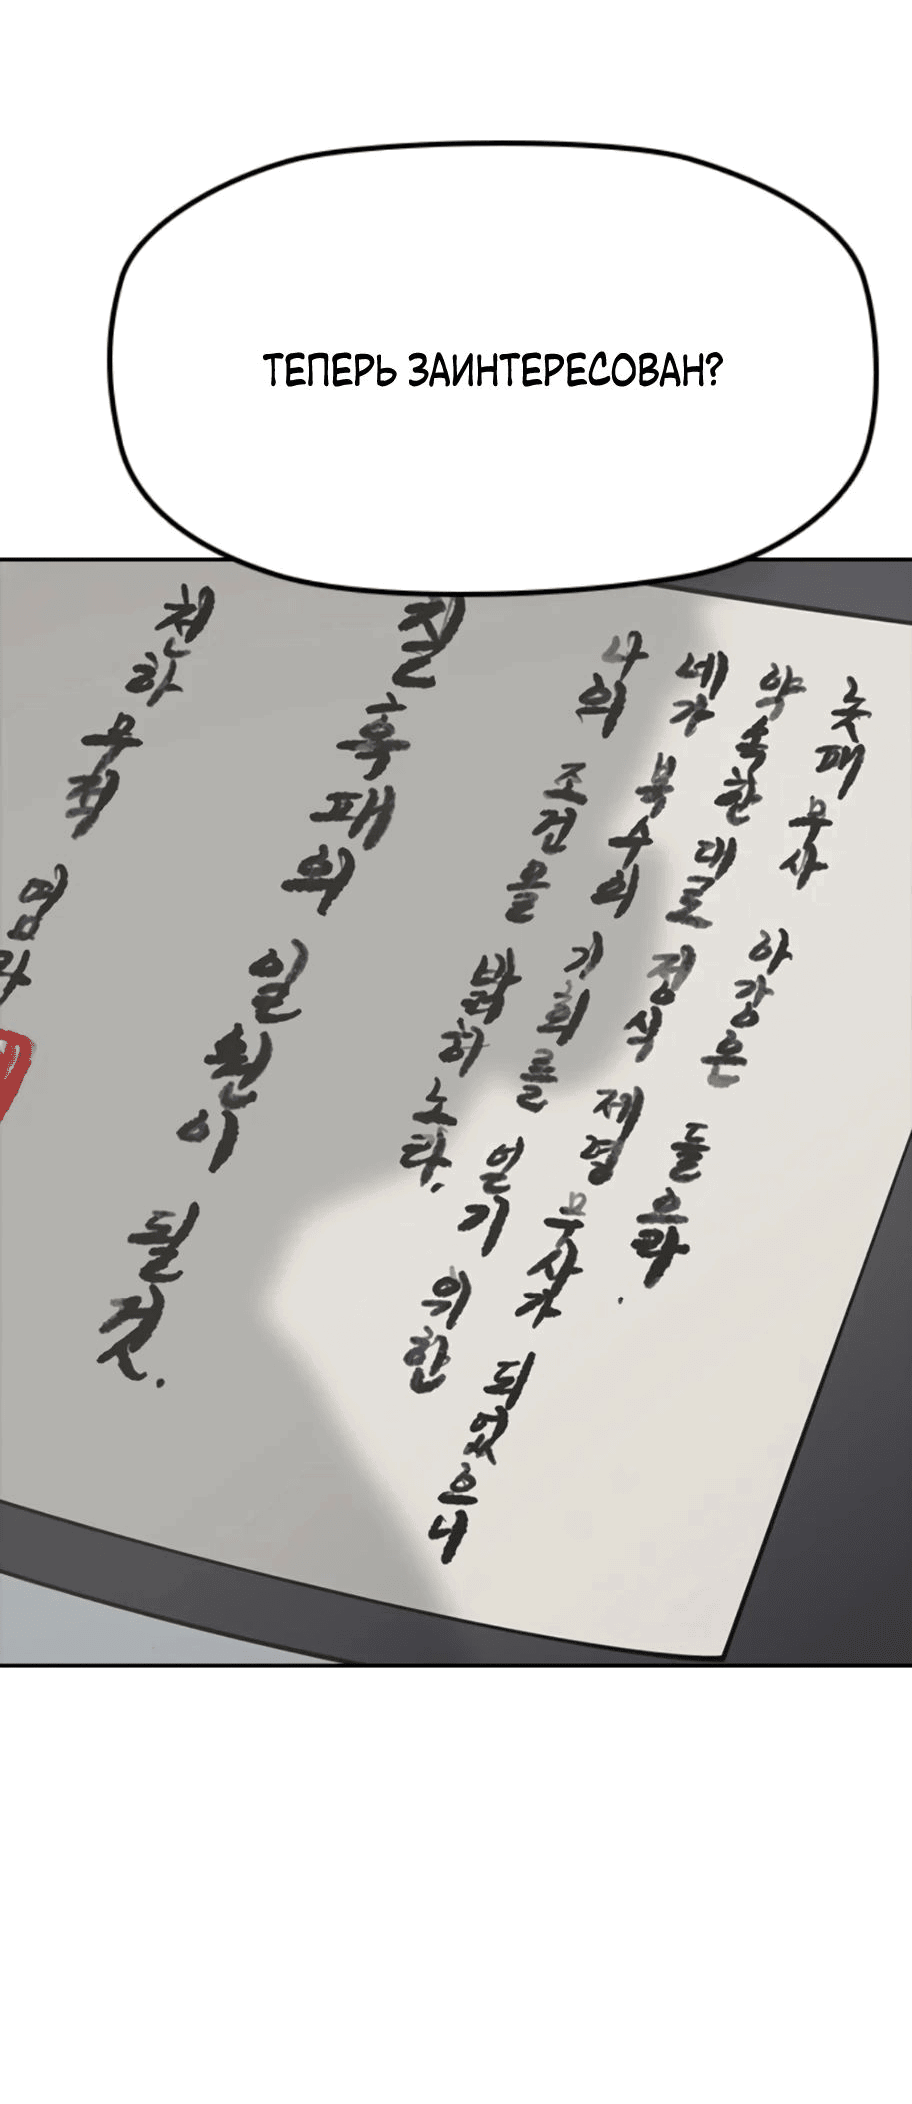 ТЕПЕРЬ ЗАИНТЕРЕСОВАН?
놋패 무사 아강은 들으라.
약속한 대로 정식 제령 무사가 되었으니
네가 복수의 기회를 얻기 위한
나의 조건을 밝히노라.
칠흑패의 일원이 될 것.
천하무적 염라